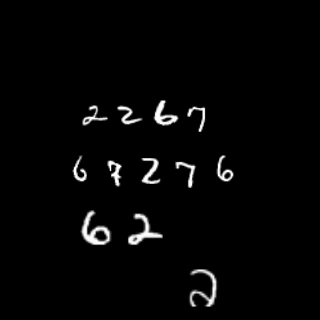 2267
67276
62
2